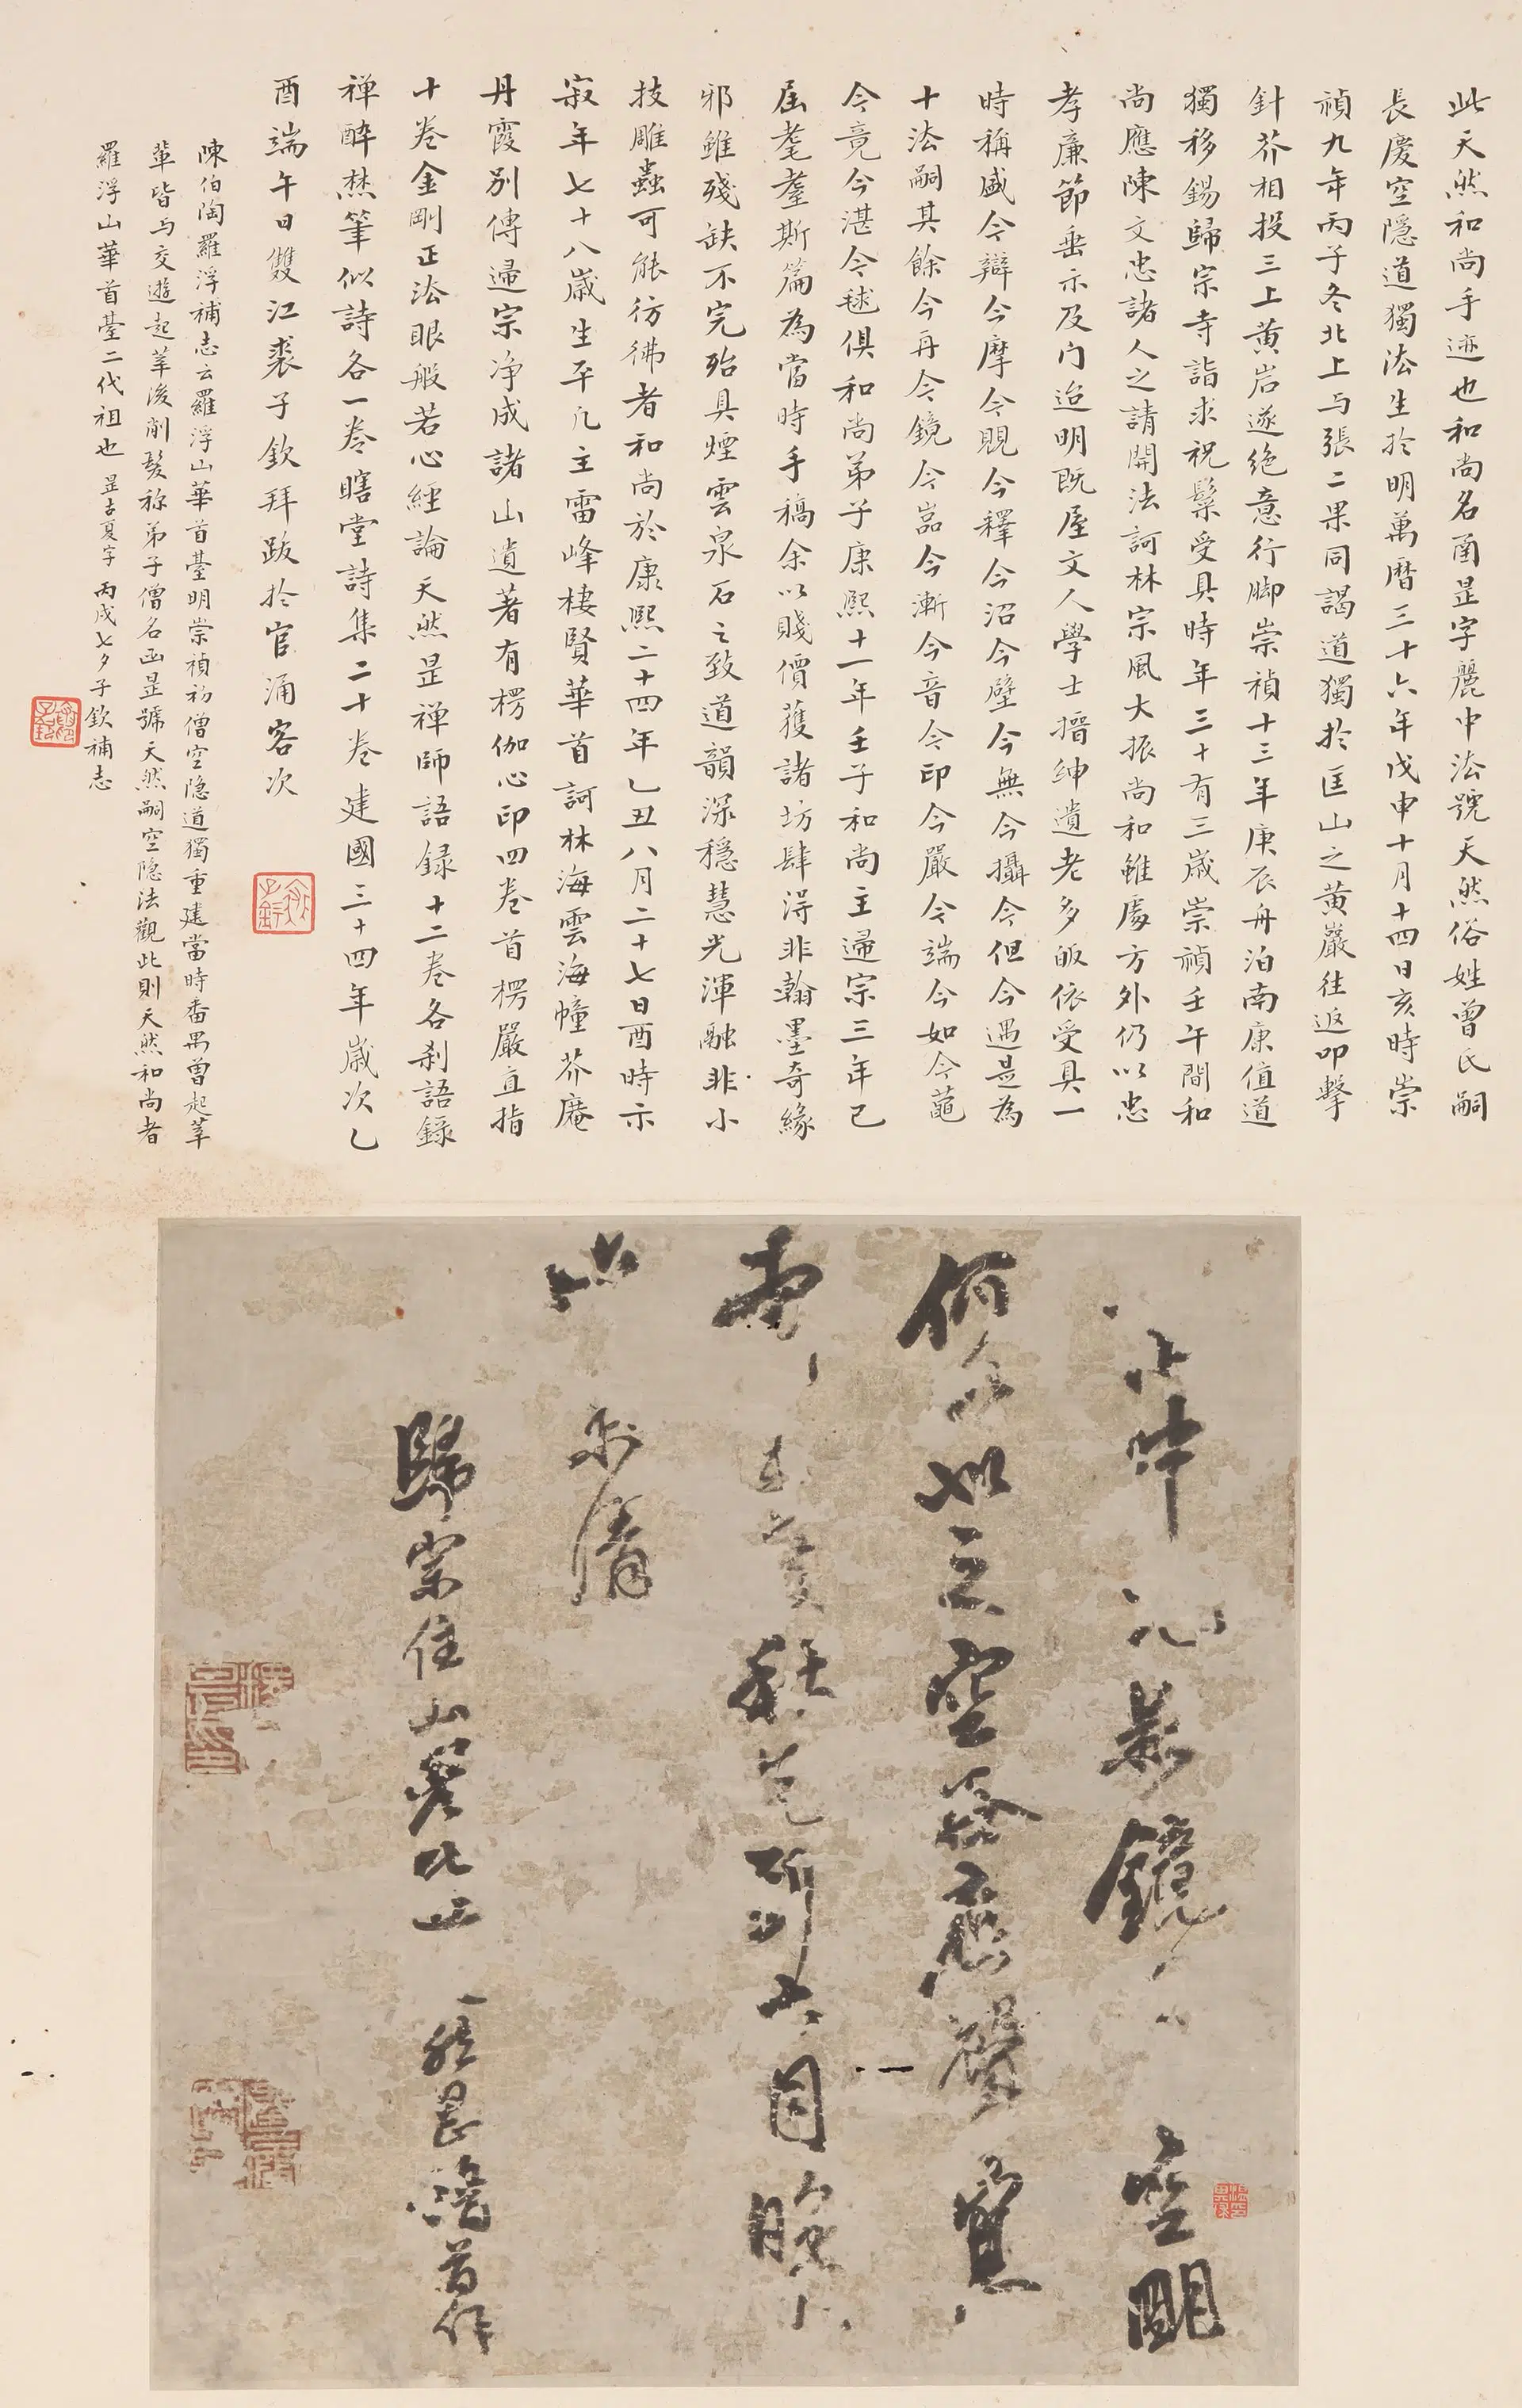 此天然和尚手迹也和尚名函昰字麗中法號天然俗姓曾氏嗣
長慶空隱道獨法生於明萬曆三十六年戊申十月十四日亥時崇
禎九年丙子冬北上与張二果同謁道獨於匡山之黄巖往返叩擊
針芥相投三上黄岩遂绝意行脚崇禎十三年庚辰舟泊南康值道
獨移錫歸宗寺詣求祝髮受具時年三十有三歲崇禎壬午間和
尚應陳文忠諸人之請開法訶林宗風大振尚和雖處方外仍以忠
孝廉節垂示及门迨明既屋文人學士搢绅遺老多皈依受具一
時稱盛今辯今摩今覞今釋今沼今壁今無今攝今但今遇是為
十法嗣其餘今再今鏡今嵓今漸今音今印今嚴今端今如今
今竟今湛今毬俱和尚弟子康熙十一年壬子和尚主歸宗三年已
屆耄耋斯篇為當時手稿余以賤價獲諸坊肆得非翰墨奇緣
邪雖殘缺不完殆具煙雲泉石之致道韻深穩慧光渾融非小
技雕蟲可能彷彿者和尚於康熙二十四年乙丑八月二十七日酉時示
寂年七十八歲生平凡主雷峰棲賢華首訶林海雲海幢芥庵
丹霞别傳歸宗净成諸山遺著有楞伽心印四卷首楞嚴直指
十卷金剛正法眼般若心經論天然昰禅師語録十二卷各刹語録
禅醉焚筆似詩各一卷瞎堂詩集二十卷建國三十四年歲次乙
酉端午日雙江裘子欽拜跋於官涌客次
陳伯陶羅浮補志云羅浮山華首臺明崇禎初僧空隐道獨重建當時番禺曾起莘
輩皆与交遊起莘後削髮称弟子僧名函昰號天然嗣空隐法觀此則天然和尚者
羅浮山華首臺二代祖也 昰古夏字 丙戌七夕子欽補志
中心影鏡 空明
何 如 空谷應聲寶
秋 自
清
歸宗住山 作